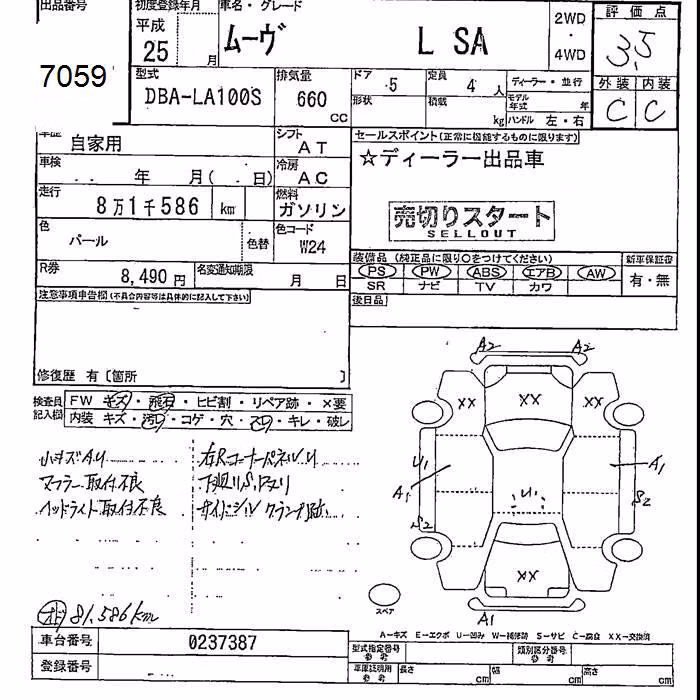 出品番号 初度登録年月 車名・グレード 2WD ・ 4WD 評価点
7059 平成 25 月 ムーヴ L SA 3.5
型式 排気量 ドア 5 定員 4 人 ディーラー・並行 外装 内装
DBA-LA100S 660 cc 形状 積載 kg モデル年式 年 C C
ハンドル 左・右
車歴 自家用 シフト AT セールスポイント(正常に機能するものに限ります)
車検 . . 年 月( . 日) 冷房 AC ☆ディーラー出品車
走行 8万1千586 km 燃料 ガソリン
売切りスタート
SELLOUT
色 パール 色替 色コード W24
装備品 (純正品に限り○をつけてください) 新車保証書
R券 8,490円 名変通知期限 月 日 PS PW ABS エアB AW 有・無
SR ナビ TV カワ
注意事項申告欄(不具合内容等は具体的に記入して下さい) 後日品
修復歴 有〔箇所 〕
検査員記入欄 FW キズ・飛石・ヒビ割・リペア跡・×要
内装 キズ・汚れ・コゲ・穴・スレ・キレ・破レ
小キズAU 右Rコーナーパネル U
マフラー取付不良 下廻りS.
ヘッドライト取付不良 サイドシル クランプ跡
A2 A2
XX XX XX
U1 A1 S2 U1 A1 S2
XX
スペア A1
81,586km
A-キズ E-エクボ U-凹み W-補修跡 S-サビ C-腐食 XX-交換済
車台番号 0237387 型式指定番号 参考 類別区分番号 参考
登録番号 車庫証明用 参考 長さ cm 幅 cm 高さ cm